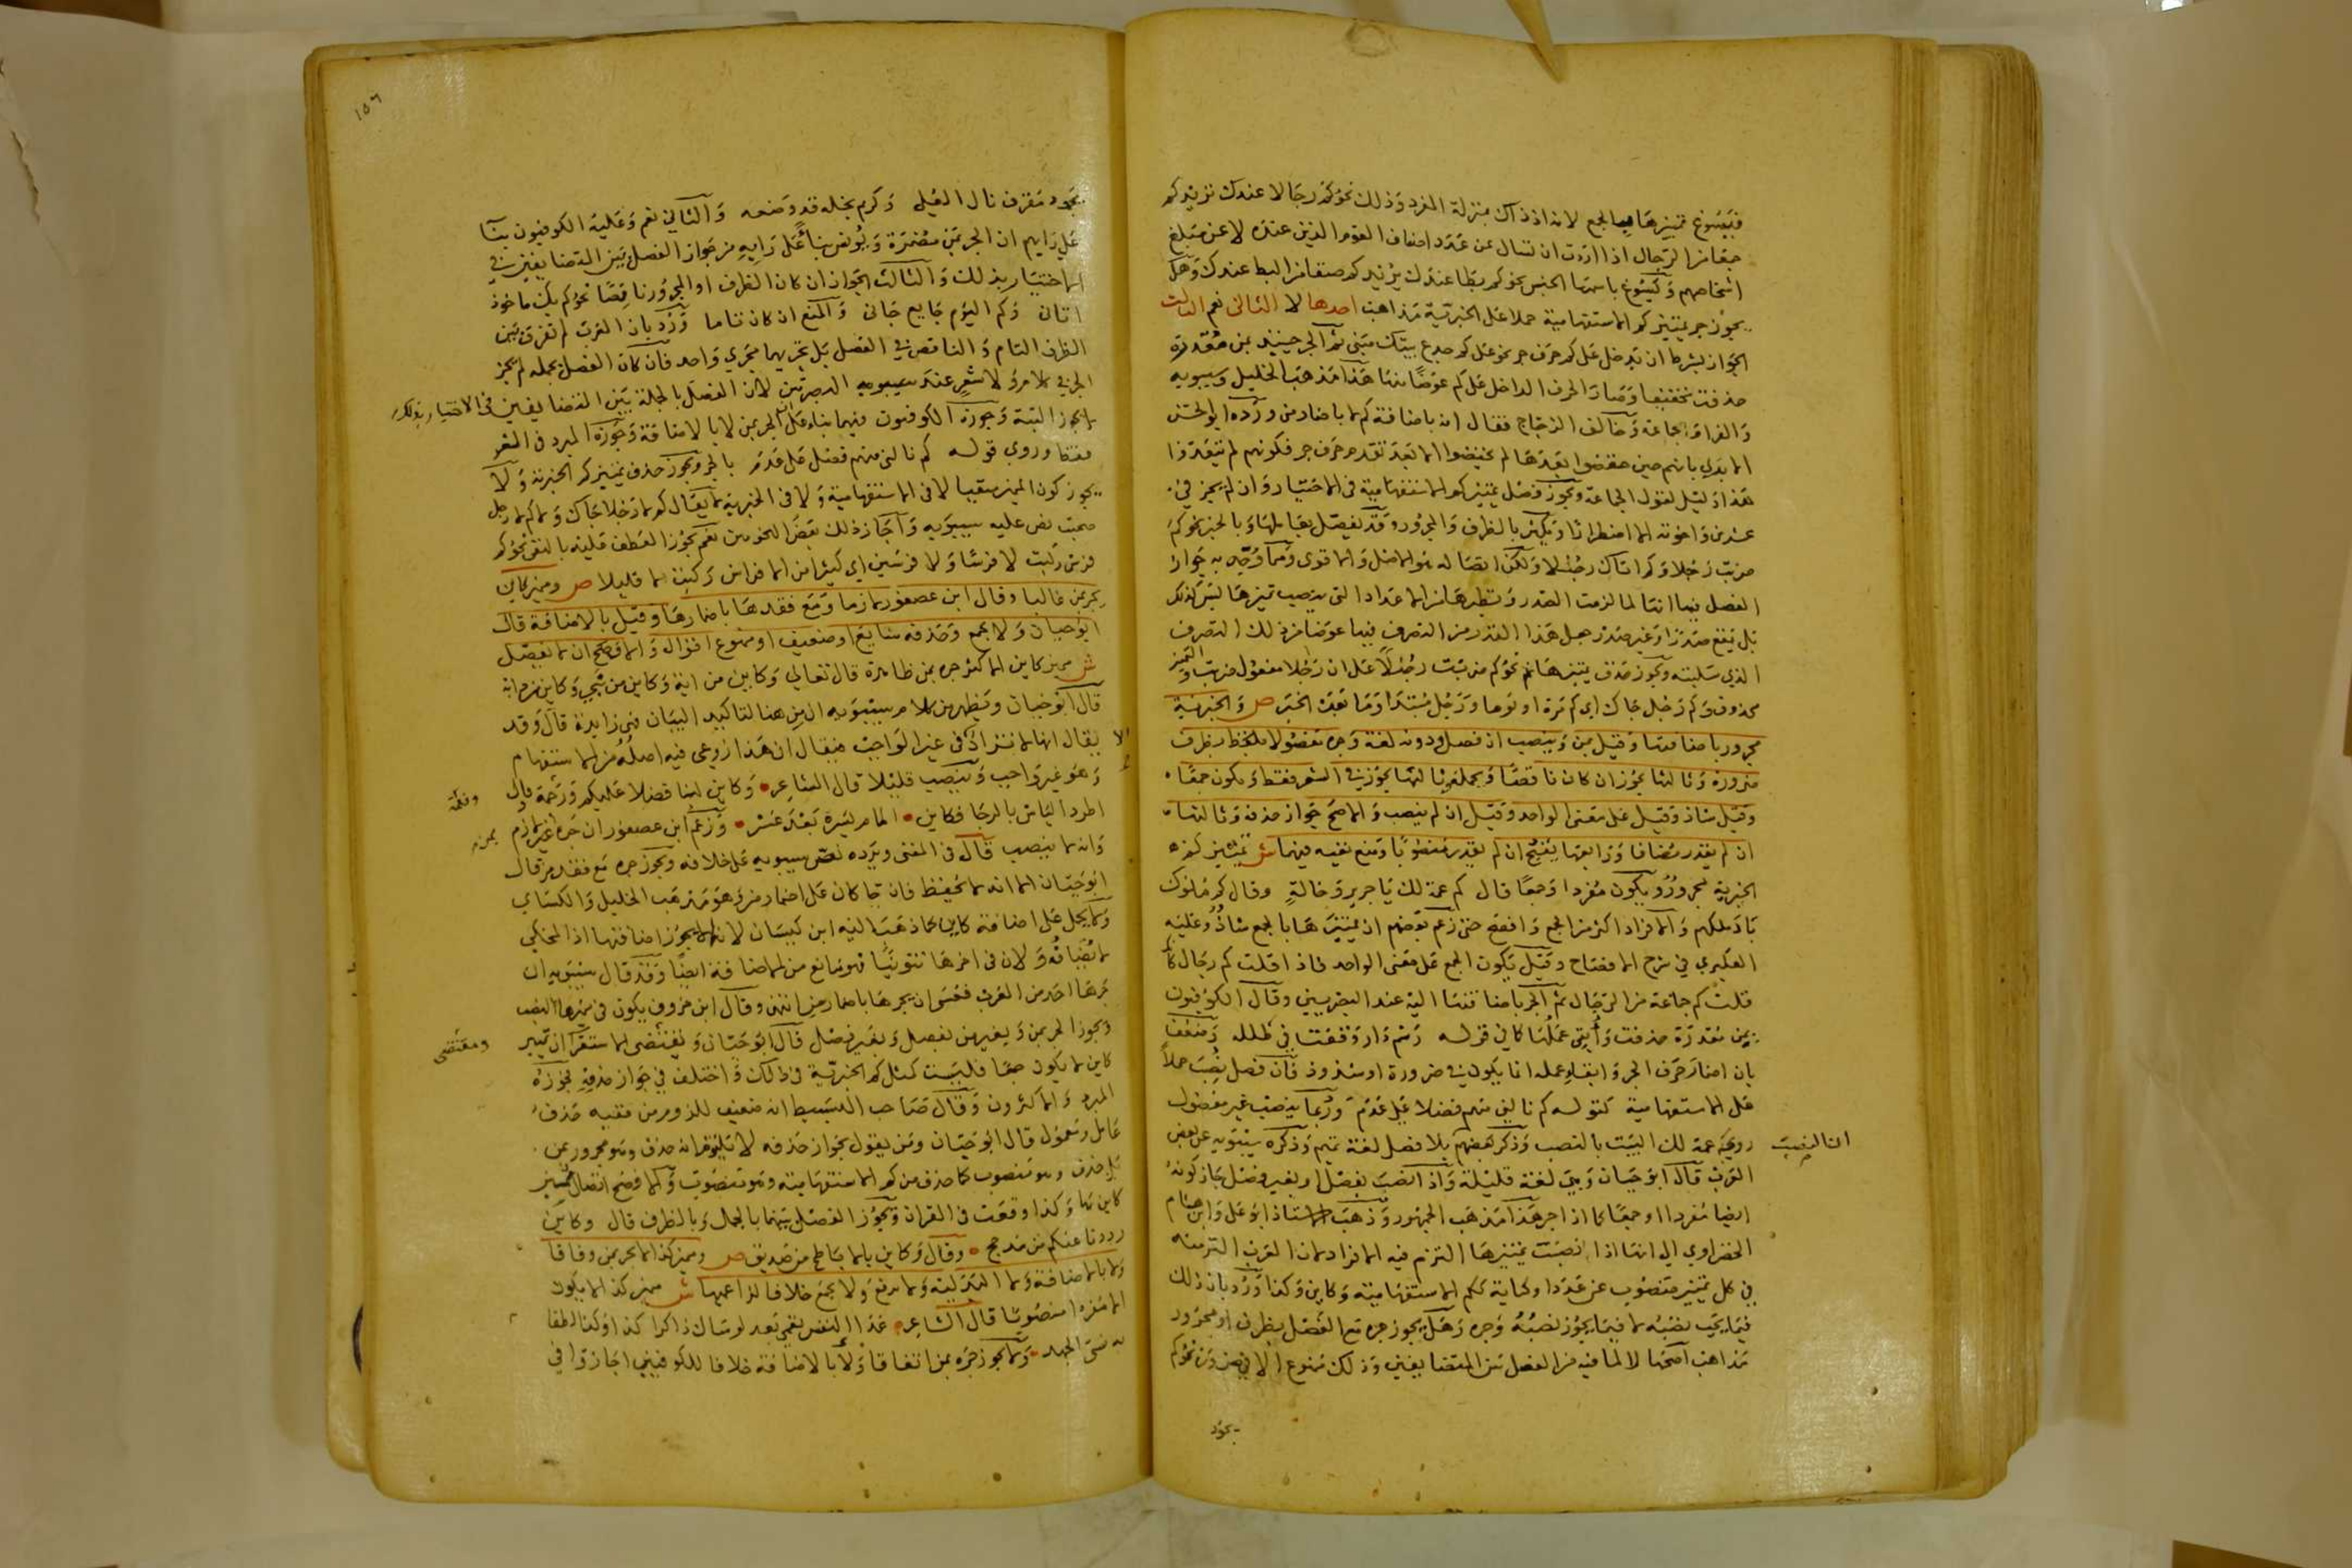 فيسوغ تمييزها بالجمع لانه اذ ذاك بمنزلة المفرد وذلك نحو كم رجالا عندك تريد كم
جمعا من الرجال اذا اردت ان تسال عن عدد اصناف القوم الذين عنده لا عن مبلغ
اشخاصهم ويسوغ باسمها الجنس نحو كم بطا عندك يريد كم صنفا من البط عندك وهل
يجوز جر تمييز كم الاستفهامية حملا على الخبرية مذاهب احدها لا الثاني نعم الثالث
الجواز بشرط ان يدخل على كم حرف جر نحو على كم جذع بيتك مبني ثم الجر حينئذ بمن مقدرة
حذفت تخفيفا وصار الحرف الداخل على كم عوضا منها هذا مذهب الخليل وسيبويه
والفرا والجماعة وخالف الزجاج فقال انه باضافة كم لا باضمار من ورده ابو الحسن
الابدي بانهم حين خفضوا بعدها لم يخفضوا الا بعد تقدم حرف جر فكونهم لم يتعدوا
هذا دليل لقول الجماعة ويجوز فصل تمييز كم الاستفهامية في الاختيار وان لم يجز في
عشرين واخوته الا اضطرارا ويكثر بالظرف والمجرور وقد يفصل بعاملها وبالخبر نحو كم
ضربت رجلا وكم اتاك رجلا ولكن اتصاله هو الاصل والاقوى ومما وجه به جواز
الفصل فيها انها لما لزمت الصدر ونظيرها من الاعداد التي ينصب تمييزها ليس كذلك
بل يقع صدرا وغير صدر جعل هذا القدر من التصرف فيها عوضا من ذلك التصرف
الذي سلبته ويجوز حذف تمييزها نحو كم ضربت رجلا على ان رجلا مفعول ضربت والتمييز
محذوف وكم رجل جاك اي كم مرة او يوما ورجل مبتدا وما بعده الخبر ص والخبرية
مجرور باضافتها وقيل بمن وينصب ان فصل ودونه لغة وجره مفصولا بظرف
ضرورة وثالثها يجوز ان كان ناقصا وبجملة ثالثها يجوز في الشعر فقط ويكون جمعا
وقيل شاذ وقيل على معنى الواحد وقيل ان لم ينصب والاصح جواز حذفه وثالثها
ان لم يقدر مضافا ورابعها يقبح ان لم يقدر منصوبا ومنع نفيه فيهما ش تمييز كم
الخبرية مجرور ويكون مفردا وجمعا قال كم عمة لك يا جرير وخالة وقال كم ملوك
باد ملكهم والافراد اكثر من الجمع وافصح حتى زعم بعضهم ان تمييزها بالجمع شاذ وعليه
العكبري في شرح المفتاح وقيل يكون الجمع على معنى الواحد فاذا قلت كم رجال كانك
قلت كم جماعة من الرجال ثم الجر باضافتها اليه عند البصريين وقال الكوفيون
بمن مقدرة حذفت وأبقي عملها كما في قوله رسم دار وقفت في طلله وضعف
بان اضمار حرف الجر وابقاء عمله انما يكون في ضرورة او شذوذ فان فصل نصب حملا
على الاستفهامية كقوله كم نالني منهم فضلا على عدم وربما ينصب غير مفصول
روي كم عمة لك البيت بالنصب وذكر بعضهم بلا فصل لغة تميم وذكره سيبويه عن بعض
ان النصب
العرب قال ابو حيان وهي لغة قليلة واذا انتصب بفصل او بغير فصل جاز كونه
ايضا مفردا وجمعا كما اذا جر هذا مذهب الجمهور وذهب الاستاذ ابو علي وابن هشام
الخضراوي الي انها اذا نصبت تمييزها التزم فيه الافراد لان العرب التزمته
في كل تمييز منصوب عن عدد او كناية ككم الاستفهامية وكاين وكذا ورد بان ذلك
فيما يجب نصبه لا فيما يجوز نصبه وجره وهل يجوز جره مع الفصل بظرف او مجرور
مذاهب اصحها لا لما فيه من الفصل بين المتضايفين وذلك ممنوع الا في ضرورة نحو كم
بجود
١٥٦
بجود مقرف نال العلى وكريم بخله قد وضعه والثاني نعم وعليه الكوفيون بنا
على رايهم ان الجر بمن مضمرة ويونس بنا على رايه من جواز الفصل بين المتضايفين في
الاختيار بذلك والثالث الجواز ان كان الظرف او المجرور ناقصا نحو كم بك ماخوذ
اتان وكم اليوم جايع جاني والمنع ان كان تاما ورد بان العرب لم تفرق بين
الظرف التام والناقص في الفصل بل تجريهما مجري واحد فان كان الفصل بجملة لم يجز
الجر في كلام ولا شعر عند سيبويه البصريين لان الفصل بالجملة بين المتضايفين في الاختيار
لا يجوز البتة وجوزه الكوفيون فيهما بناء على ان الجر بمن لا بالاضافة وجوزه المبرد في الشعر
فقط وروي قوله كم نالني منهم فضل على عدم بالجر ويجوز حذف تمييز كم الخبرية ولا
يجوز كون المميز منفيا لا في الاستفهامية ولا في الخبرية لا يقال كم لا رجلا جاك ولا كم لا رجل
صحبت نص عليه سيبويه واجاز ذلك بعض النحويين نعم يجوز العطف عليه بالنفي نحو كم
فرس ركبت لا فرسا ولا فرسين اي كثيرا من الافراس ركبت لا قليلا ص ومميز كاين
يجر بمن غالبا وقال ابن عصفور لازما ومع فقدها باضمارها وقيل بالاضافة قال
ابو حيان ولا يجمع وحذفه شايع او ضعيف او ممنوع اقوال والافصح ان لا يفصل
ش مميز كاين الاكثر جره بمن ظاهرة قال تعالي وكاين من اية وكاين من نبي وكاين من دابة
قال ابو حيان ويظهر من كلام سيبويه ان من هنا لتاكيد البيان فهي زايدة قال وقد
يقال انها لا تزاد في غير الواجب فيقال ان هذا روعي فيه اصله من الاستفهام
الا
وهو غير واجب وينصب قليلا قال الشاعر وكاين لنا فضلا عليكم ورحمة وقال
اطرد الياس بالرجا فكاين الما حم يسره بعد عسر وزعم ابن عصفور ان جره لازم
وانه لا ينصب قال في المغني ويرده نص سيبويه على خلافه ويجوز جره مع فقد من قال
ابو حيان الا انه لا يحفظ فان جا كان على اضمار من وهو مذهب الخليل والكساي
ولا يحمل على اضافة كاين كما ذهب اليه ابن كيسان لانه لا يجوز اضافتها اذ المحكي
لا يضاف ولان في اخرها تنوينا فهو مانع من الاضافة ايضا وقد قال سيبويه ان
جرها احد من العرب فعسى ان يجرها باضمار من انتهى وقال ابن خروف يكون في مميزها النصب
ويجوز الجر بمن وبغير من بفصل وبغير فصل قال ابو حيان ومقتضى الاستقرا ان تمييز
ومقتضى
كاين لا يكون جمعا فليست كمثل كم الخبرية في ذلك واختلف في جواز حذفه فجوزه
المبرد والاكثرون وقال صاحب البسيط انه ضعيف للزوم من ففيه حذف
عامل ومعمول قال ابو حيان ومن يقول بجواز حذفه لا يلتزم انه حذف وهو مجرور بمن
بل حذف وهو منصوب كما حذف من كم الاستفهامية وهو منصوب والافصح اتصال تمييز
كاين بها وكذا وقعت في القران ويجوز الفصل بينهما بالجملة وبالظرف قال وكاين
رددنا عنكم من مدجج وقال وكاين بالاباطح من صديق ص ومميز كذا لا يجر بمن وفاقا
ولا بالاضافة ولا البدلية ولا يرفع ولا يجمع خلافا لزاعميها ش مميز كذا لا يكون
الا مفردا منصوبا قال الشاعر عد النفس نعمى بعد بوساك ذاكرا كذا وكذا لطفا
به نسي الجهد ولا يجوز جره بمن اتفاقا ولا بالاضافة خلافا للكوفيين اجازوا في